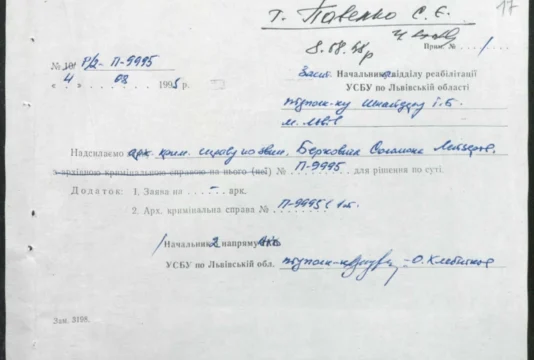 т. Павенко С. Є.
17
8.08.95р
Прим. № 1
№ 10/ Р/2- П-9995
« 4 » 08 1995 р.
Заст. Начальника відділу реабілітації
УСБУ по Львівській області
підполк-ку Шнайдеру Г.Б.
м. Львів
Надсилаємо арх. крим. справу по звин. Берковича Соломона
архівною кримінальною справою на нього (неї) № П-9995 для рішення по суті.
Додаток: 1. Заява на – арк.
2. Арк. кримінальна справа № П-9995 (1 т.
Начальник 2 напрямку
УСБУ по Львівській обл. підполк-к О. Хлебніков
Зам. 3198.